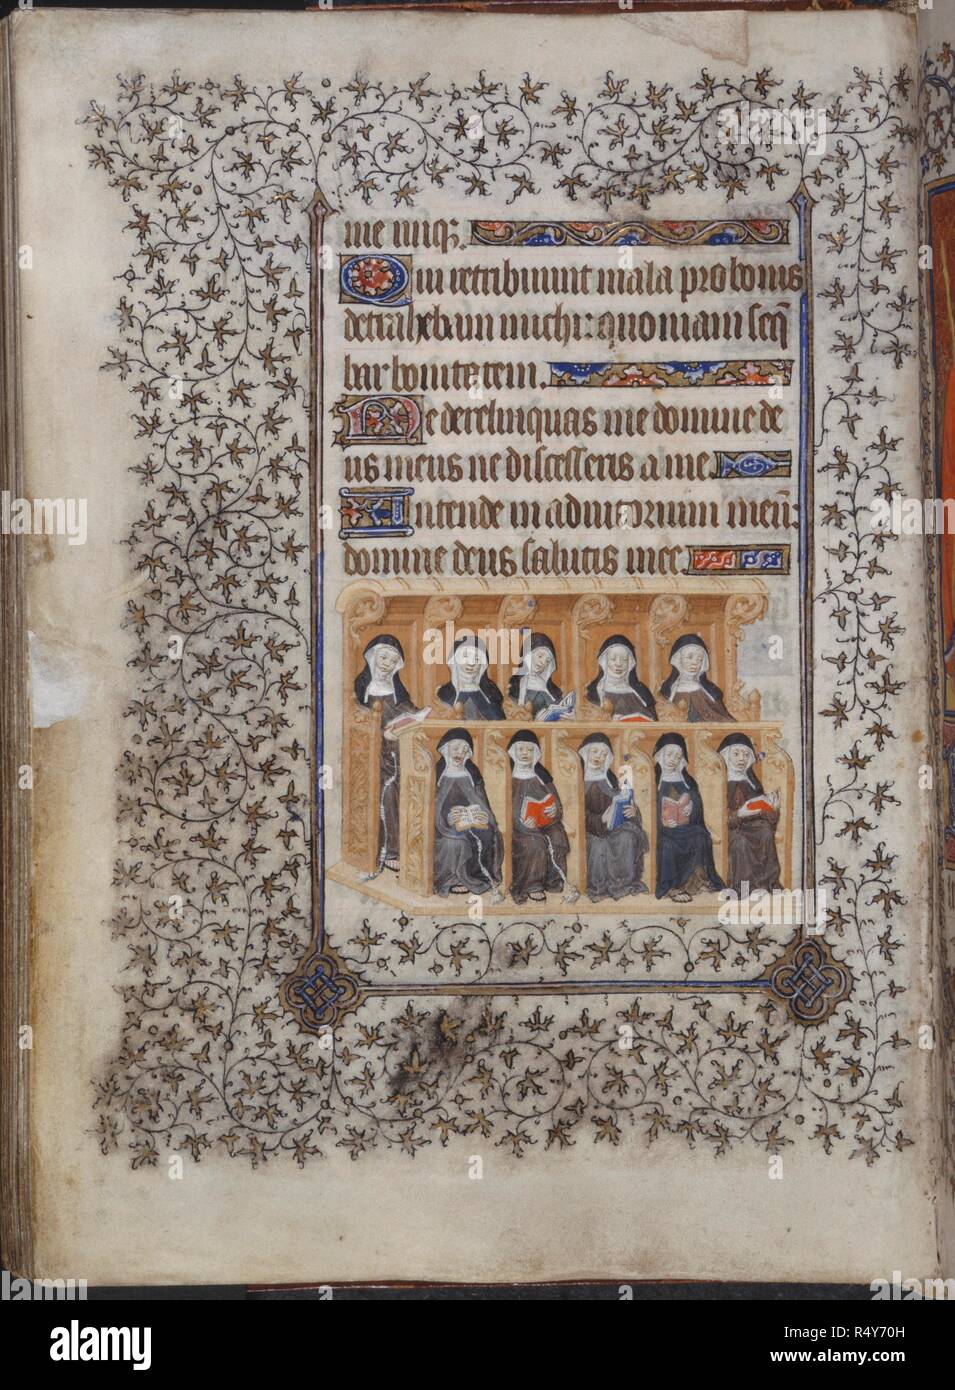 me iniq̄.
Qui retribuunt mala pro bonis
detrahebant michi: quoniam seq̄
bar bonitatem.
Ne derelinquas me domine de
us meus ne discesseris a me.
Intende in adiutorium meū:
domine deus salutis mee.
alamy
alamy
Image ID: R4Y70H
www.alamy.com